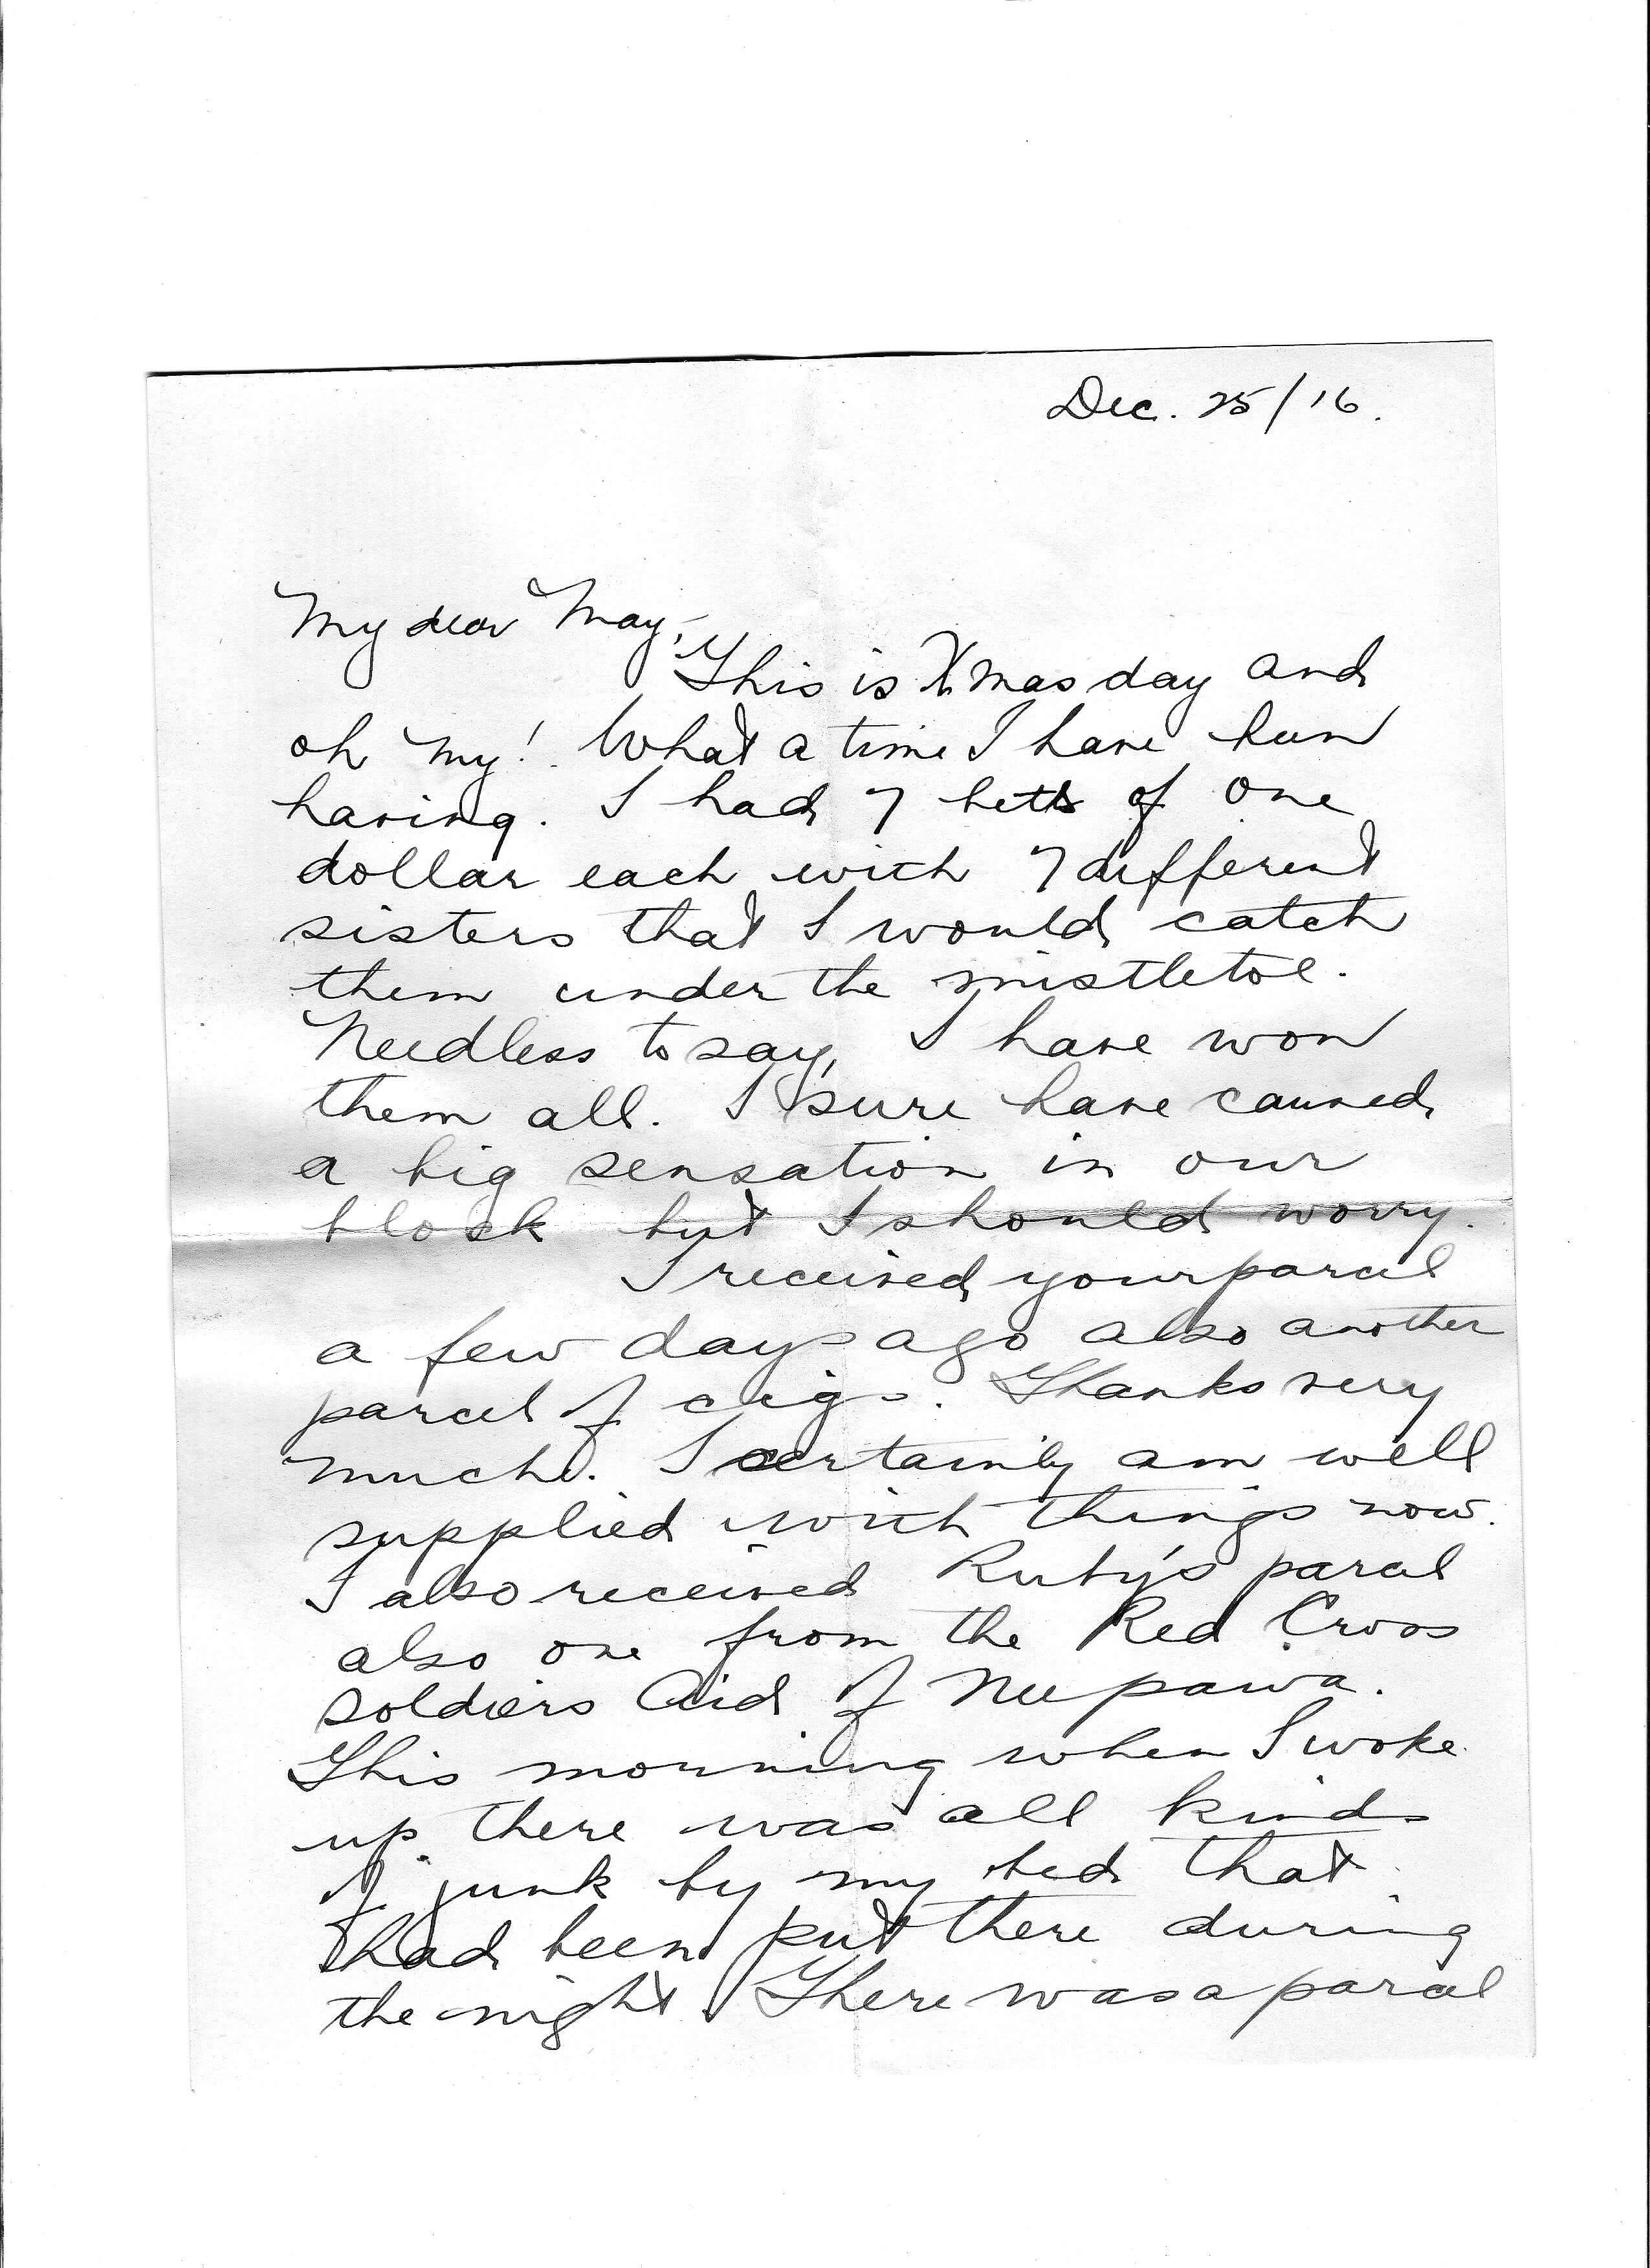 Dec. 25/16.
My dear May,
This is Xmas day and
oh my! What a time I have been
having. I had 7 bets of one
dollar each with 7 different
sisters that I would catch
them under the mistletoe.
Needless to say, I have won
them all. I sure have caused
a big sensation in our
block but I should worry.
I received your parcel
a few days ago also another
parcel of cigs. Thanks very
much. I certainly am well
supplied with things now.
I also received Ruby's parcel
also one from the Red Cross
Soldiers Aid of Neepawa.
This morning when I woke
up there was all kinds
of junk by my bed that
had been put there during
the night. There was a parcel